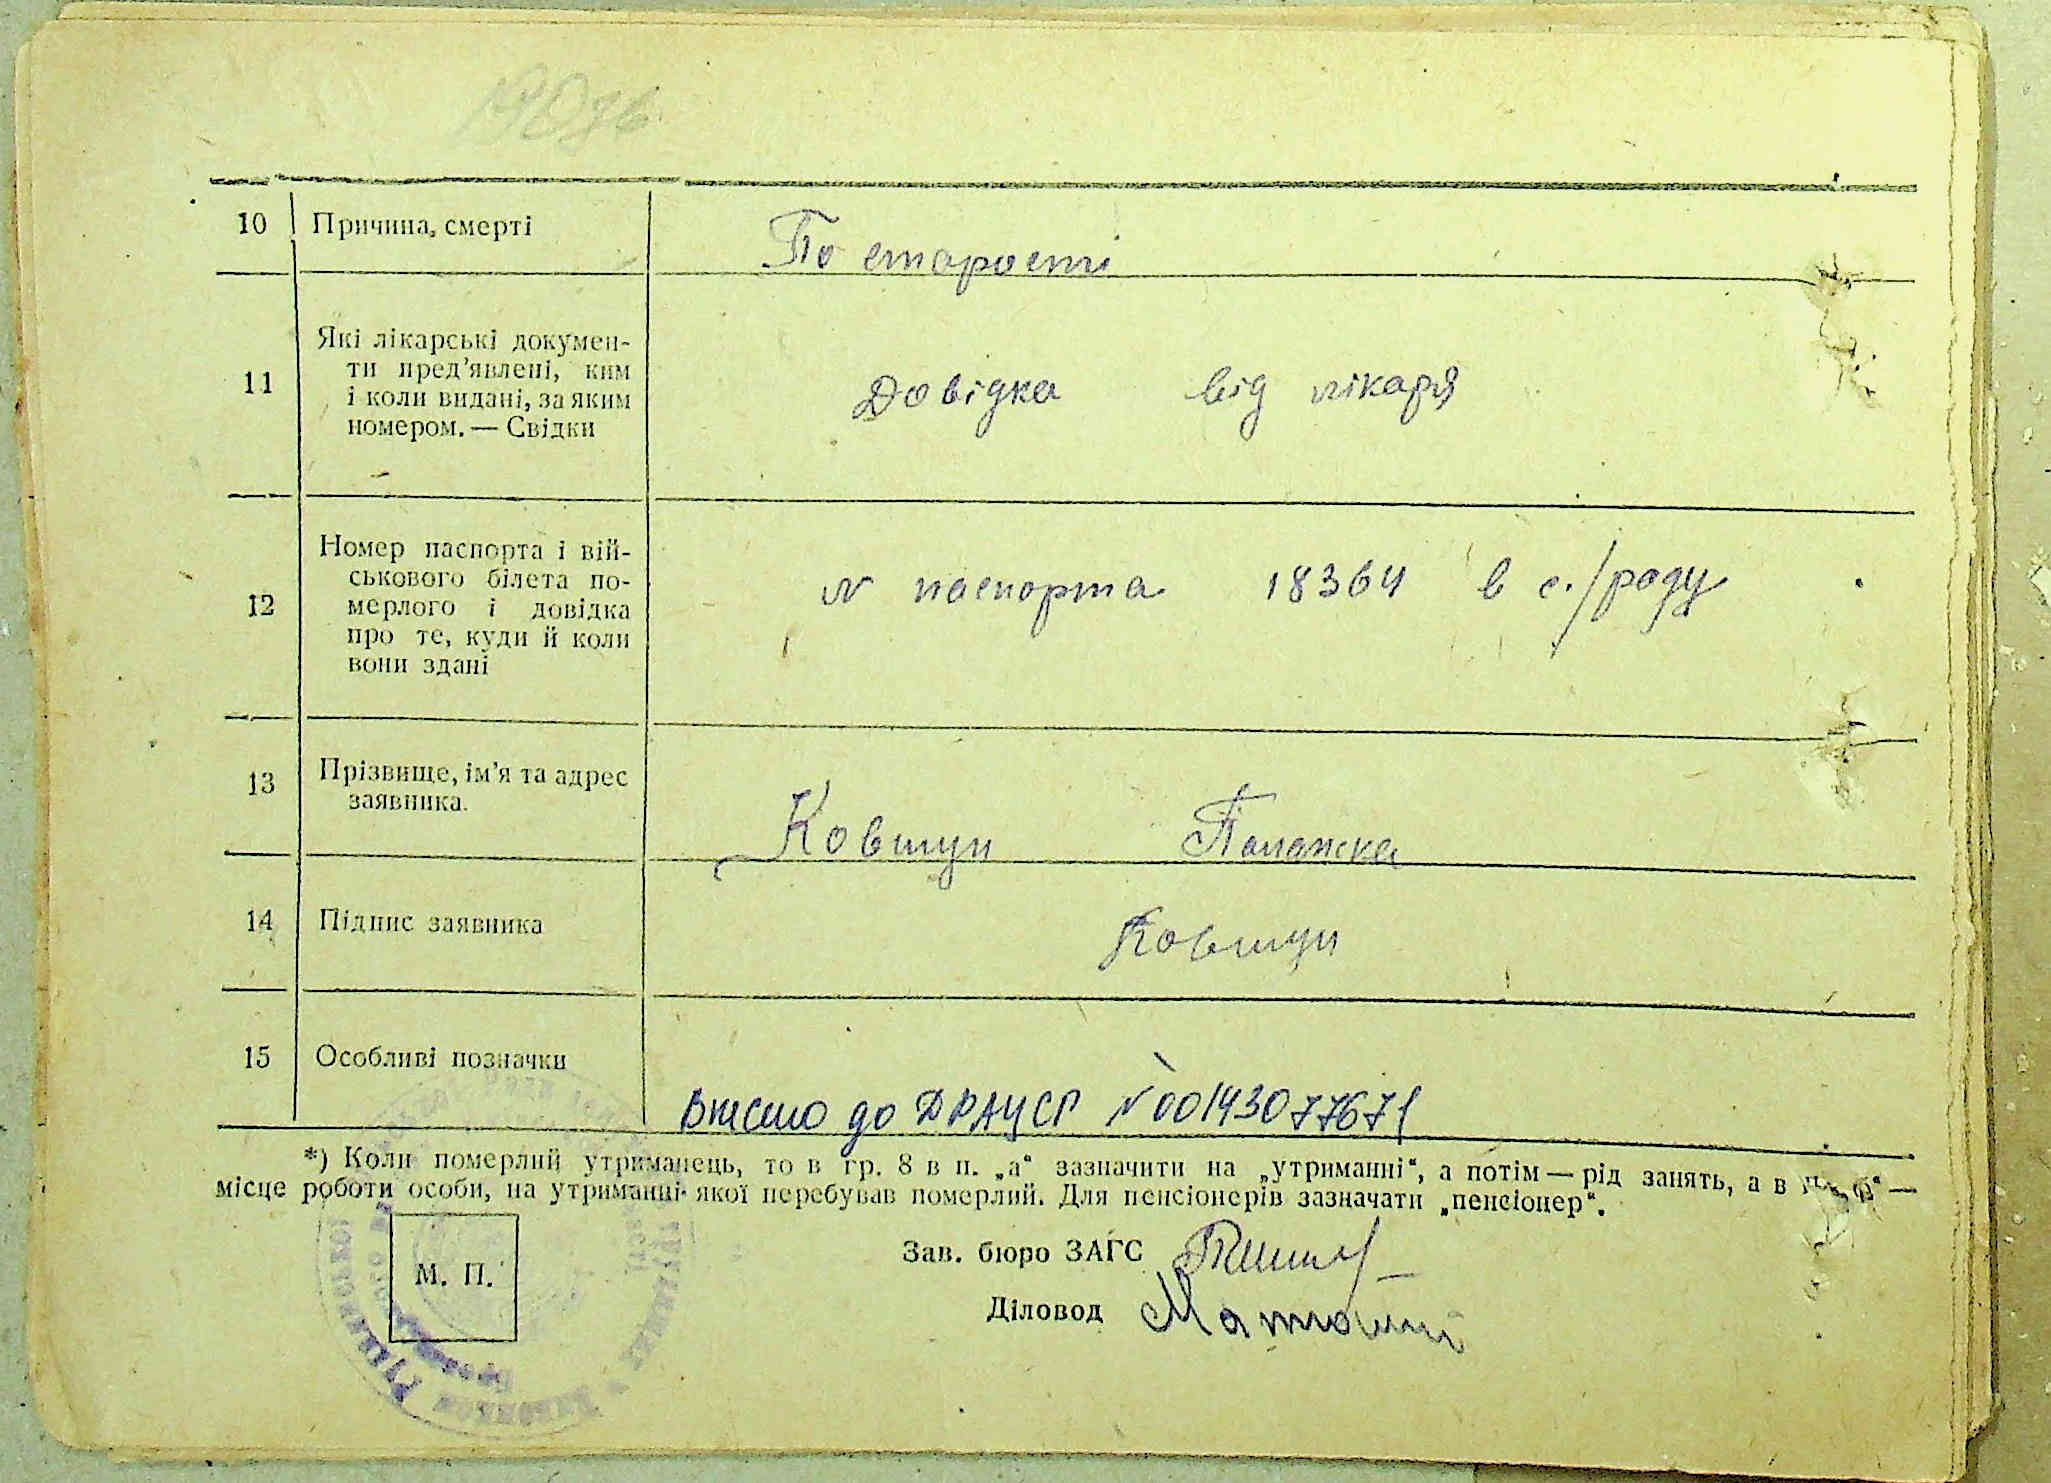 10 Причина смерті
По старості
Які лікарські докумен-
ти пред’явлені, ким
11 і коли видані, за яким
номером. — Свідки
Довідка від лікаря
Номер паспорта і вій-
ськового білета по-
12 мерлого і довідка
про те, куди й коли
вони здані
№ паспорта 18364 в с./раду
13 Прізвище, ім’я та адрес
заявника.
Ковтун Палажка
14 Підпис заявника
Ковтун
15 Особливі позначки
Внесено до ДРАЦСГ №00143077671
*) Коли померлий утриманець, то в гр. 8 в п. „а“ зазначити на „утриманні“, а потім — рід занять, а в п. „б“ —
місце роботи особи, на утриманні якої перебував померлий. Для пенсіонерів зазначати „пенсіонер“.
М. П.
Зав. бюро ЗАГС
Діловод